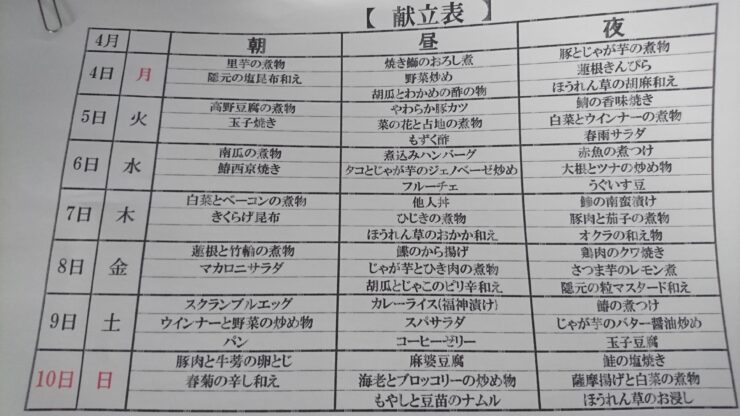 【 献立表 】
4月 朝 昼 夜
4日 月
里芋の煮物
隠元の塩昆布和え
焼き鰤のおろし煮
野菜炒め
胡瓜とわかめの酢の物
豚とじゃが芋の煮物
蓮根きんぴら
ほうれん草の胡麻和え
5日 火
高野豆腐の煮物
玉子焼き
やわらか豚カツ
菜の花と占地の煮物
もずく酢
鯖の香味焼き
白菜とウインナーの煮物
春雨サラダ
6日 水
南瓜の煮物
鰆西京焼き
煮込みハンバーグ
タコとじゃが芋のジェノベーゼ炒め
フルーチェ
赤魚の煮つけ
大根とツナの炒め物
うぐいす豆
7日 木
白菜とベーコンの煮物
きくらげ昆布
他人丼
ひじきの煮物
ほうれん草のおかか和え
鯵の南蛮漬け
豚肉と茄子の煮物
オクラの和え物
8日 金
蓮根と竹輪の煮物
マカロニサラダ
鰈のから揚げ
じゃが芋とひき肉の煮物
胡瓜とじゃこのピリ辛和え
鶏肉のクワ焼き
さつま芋のレモン煮
隠元の粒マスタード和え
9日 土
スクランブルエッグ
ウインナーと野菜の炒め物
パン
カレーライス(福神漬け)
スパサラダ
コーヒーゼリー
鰆の煮つけ
じゃが芋のバター醤油炒め
玉子豆腐
10日 日
豚肉と牛蒡の卵とじ
春菊の辛し和え
麻婆豆腐
海老とブロッコリーの炒め物
もやしと豆苗のナムル
鮭の塩焼き
薩摩揚げと白菜の煮物
ほうれん草のお浸し